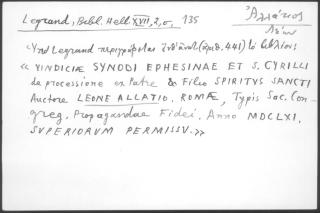 Legrand, Bibl. Hell. XVII, 2, σ, 135
Ἀλλάτιος
Λέων
Ὑπὸ Legrand περιγράφεται ὑπ' (ἀριθ. 441) τὸ βιβλίον:
« VINDICIÆ SYNODI EPHESINAE ET S. CYRILLI
de processione ex Patre & Filio SPIRITVS SANCTI
Auctore LEONE ALLATIO. ROMÆ, Typis Sac. Con-
greg. Propagandae Fidei. Anno MDCLXI.
SVPERIORVM PERMISSV.»